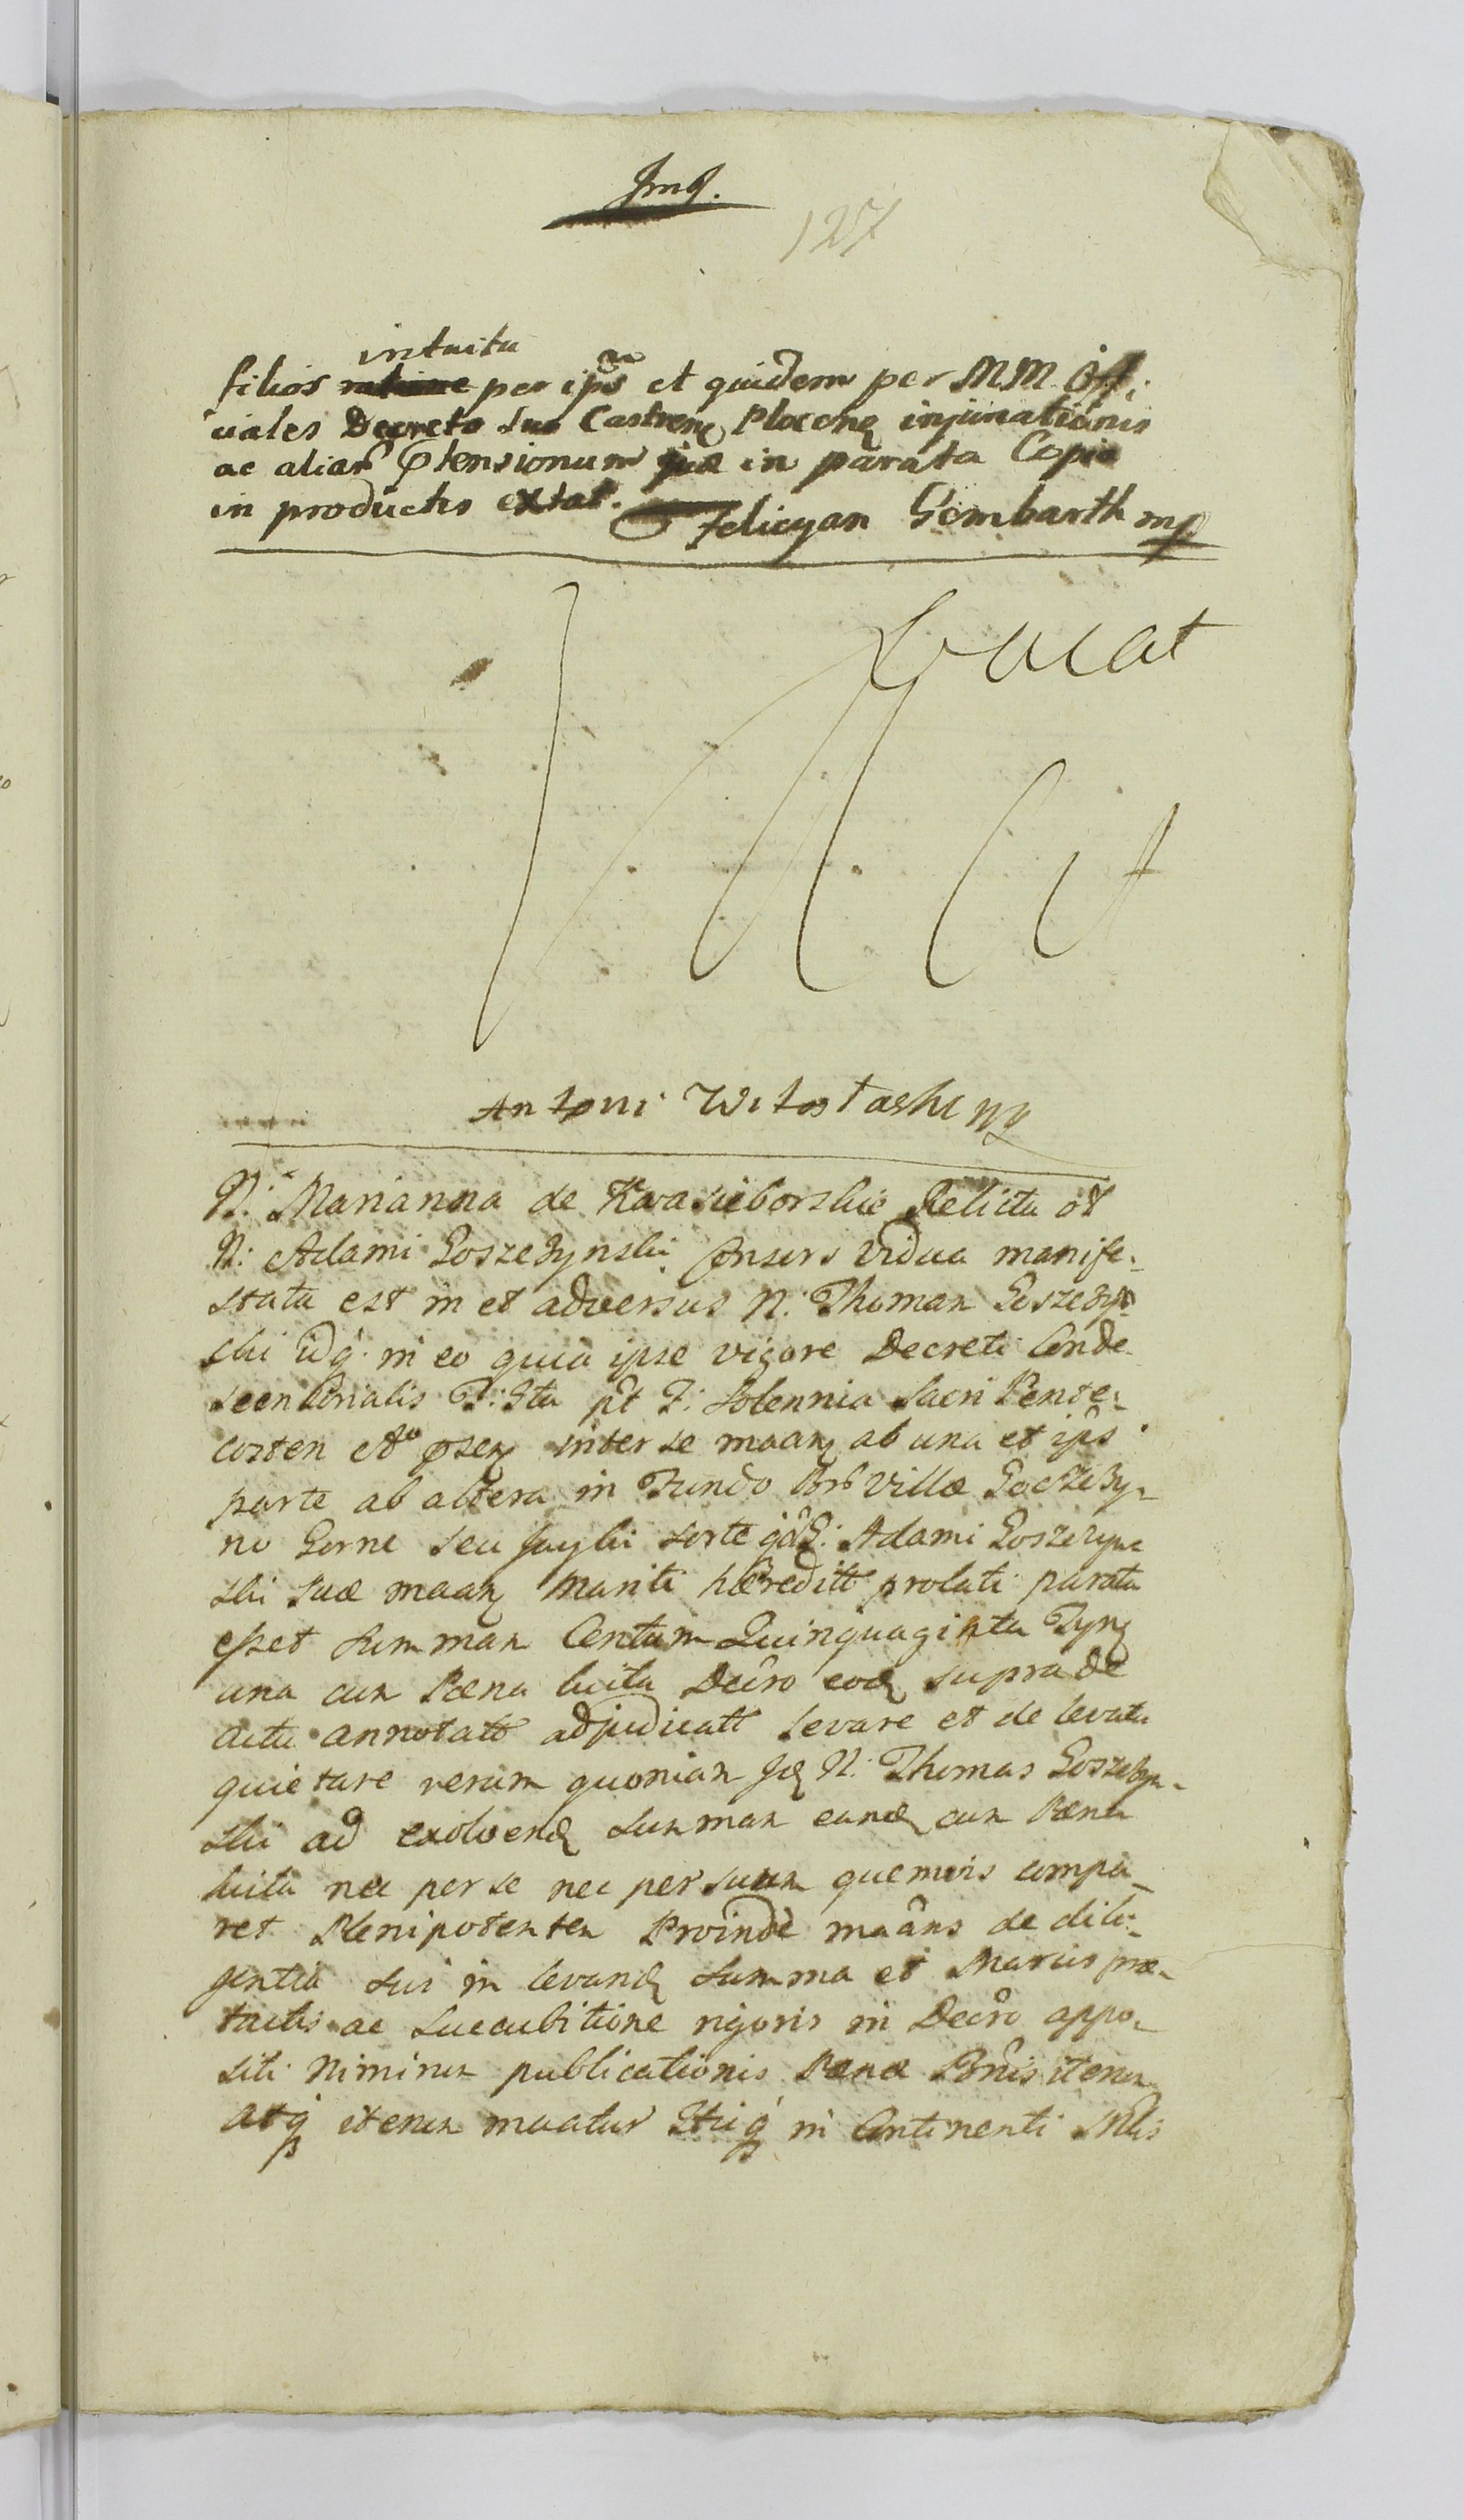 Jmq.
127
intuitu
filios per ips et quidem per MM Offi:
ciales Decreto suo Castren Plocen injunationis
ac aliar Ptensionum quæ in parata Copia
in productis extat. Felicyan Gombarth mp
Vacat
Antoni Witostaski mp
N: Marianna de Kwasieborskie Relicta olf
N: Adami Goszczynski Consors vidua manife-
stata est in et adversus N: Thomam Goszczyn
ski idq in eo quia ipse vigore Decreti Conde
scensorialis F: 3tia pt F: Solennia Sacri Pente-
costen Ao psen inter se maan ab una et ips
parte ab altera in Fundo Villæ Goszczy-
no Gorne seu sorte Adami Goszczyn
ski suæ maan mariti hæreditt prolati parata
esset summam Centum Quinquaginta Tynf
una cum Pæna luita Decro eod supra de
actu annotatt adjudicatt levare et de levata
quietare verum quoniam N: Thomas Goszczyn-
ski ad exolvend summam eand cum Pæna
luita nec per se nec per suum quemvis compa-
ret Plenipotentem Proinde maans de dili-
gentia sui in levand summa et Marcis præ-
tactis ac succubitione rigoris in Decro appo-
siti nimirum publicationis Pænæ Bnis iterum
atq iterum maatur Stiq in Continenti Mlis